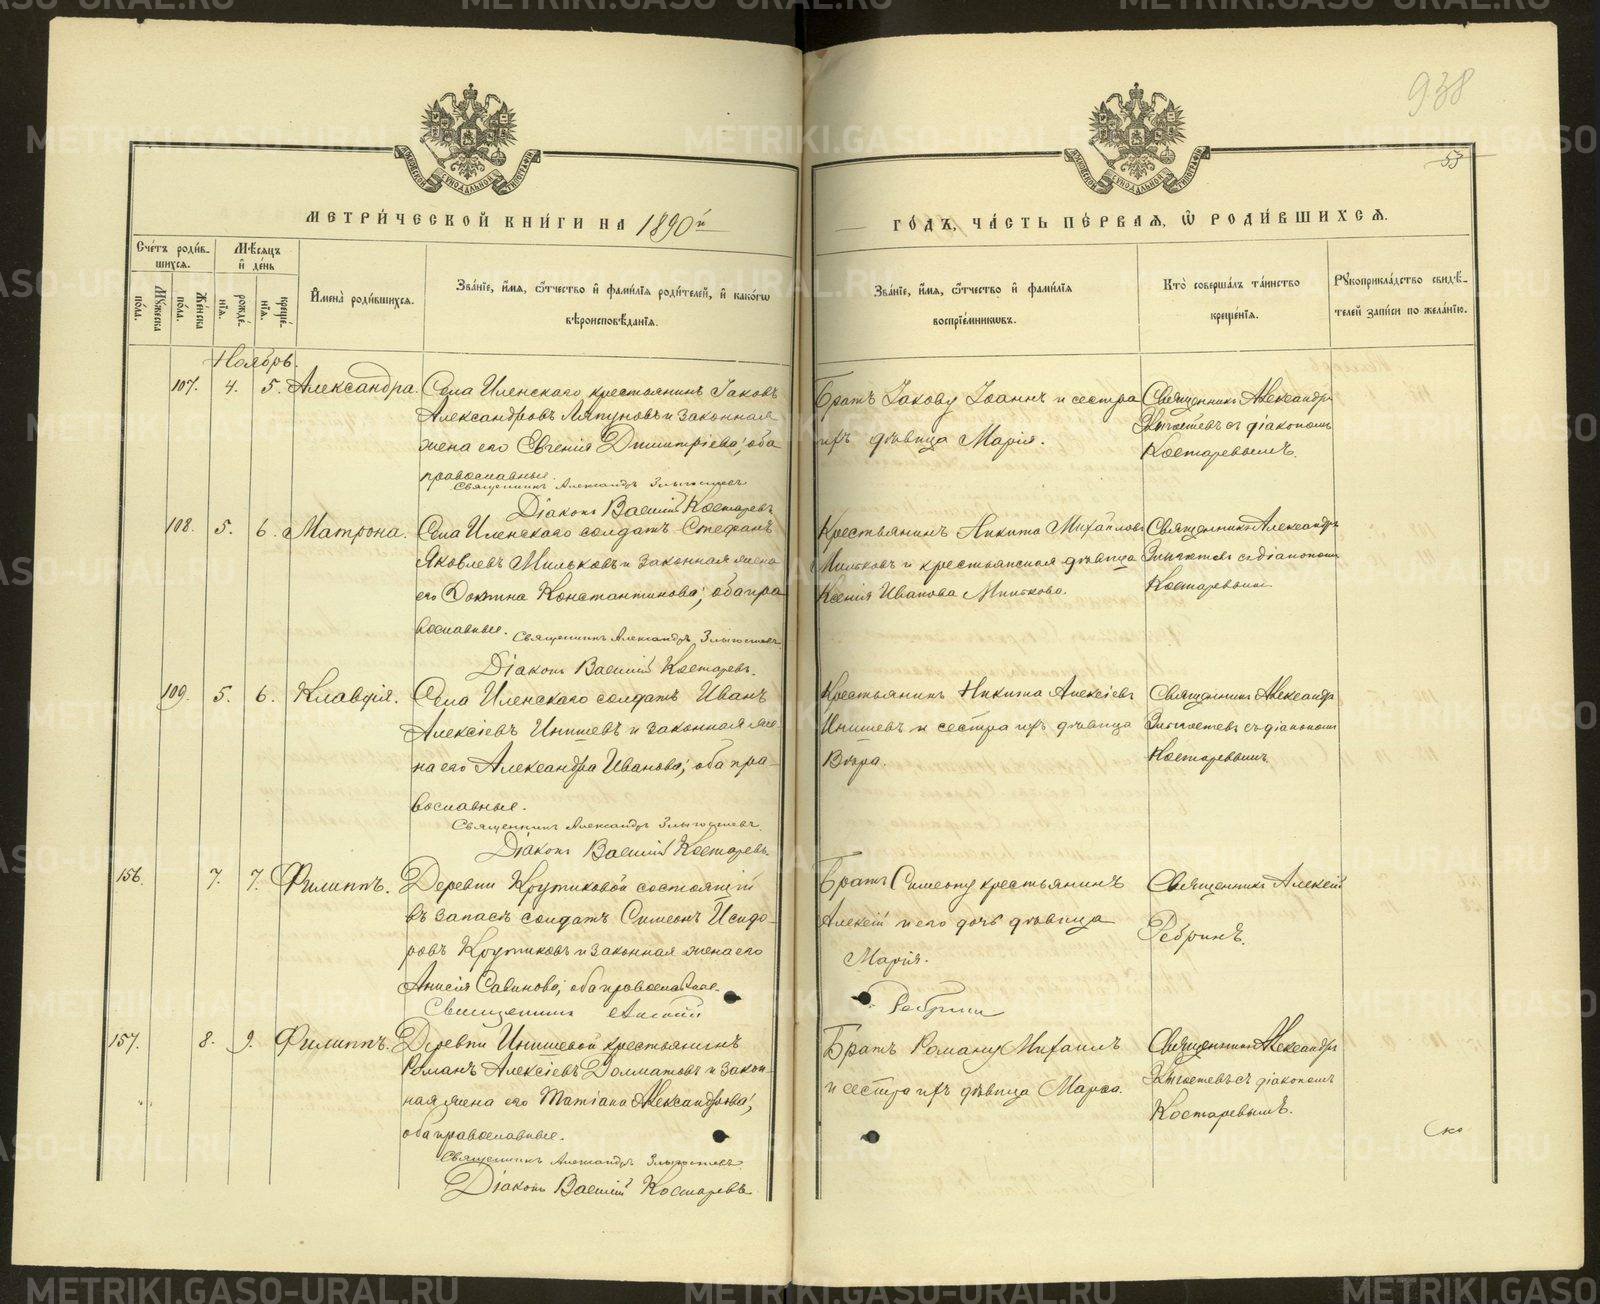 938
53
МЕТРИ́ЧЕСКОЙ КНИ́ГИ НА 1890й
ГО́ДЪ, ЧА́СТЬ ПЕ́РВАЯ, Ѽ РОДИ́ВШИХСЯ.
Сче́тъ роди́в-
шихся.
Мѣ́сяцъ
и҆ де́нь
Му́жеска
по́ла.
Же́нска
по́ла.
рожде́-
нїя.
креще́-
нїя.
И҆мена̀ роди́вшихся.
Зва́нїе, и҆́мя, ѻ҆́тчество и҆ фами́лїя роди́телей, и҆ како́гѡ
вѣроисповѣ́данїя.
Зва́нїе, и҆́мя, ѻ҆́тчество и҆ фами́лїя
воспрїе́мникѡвъ.
Кто̀ соверша́лъ та́инство
креще́нїя.
Рꙋкоприкла́дство свидѣ́-
телей за́писи по жела́нїю.
Ноябрь.
107. 4. 5. Александра.
Села Иленскаго крестьянинъ Іаковъ
Александровъ Ляпуновъ и законная
жена его Евгенія Дмитріева; оба
православные.
Священникъ Александръ Злыгостевъ
Діаконъ Василій Костаревъ
Братъ Іакову Іоаннъ и сестра
ихъ дѣвица Марія.
Священникъ Александръ
Злыгостевъ съ діакономъ
Костаревымъ.
108. 5. 6. Матрона.
Села Иленскаго солдатъ Стефанъ
Яковлевъ Мильковъ и законная жена
его Константинова; оба пра
вославные.
Священникъ Александръ Злыгостевъ
Діаконъ Василій Костаревъ.
Крестьянинъ Никита Михайловъ
Мильковъ и крестьянская дѣвица
Ксенія Иванова Милькова.
Священникъ Александръ
Злыгостевъ съ діакономъ
Костаревымъ
109. 5. 6. Клавдія.
Села Иленскаго солдатъ Иванъ
Алексіевъ Инишевъ и законная же-
на его Александра Иванова; оба пра-
вославные.
Священникъ Александръ Злыгостевъ.
Діаконъ Василій Костаревъ
Крестьянинъ Никита Алексіевъ
Инишевъ и сестра ихъ дѣвица
Вѣра.
Священникъ Александръ
Злыгостевъ съ діакономъ
Костаревымъ.
156. 7. 7. Филиппъ.
Деревни Крутиковой состоящій
въ запасѣ солдатъ Симеонъ Исидо-
ровъ Крутиковъ и законная жена его
Анисія Савинова; оба православные.
Священникъ Алексій
Братъ Симеону крестьянинъ
Алексій и его дочь дѣвица
Марія.
Ребринъ
Священникъ Алексій
Ребринъ.
157. 8. 9. Филиппъ.
Деревни Инишевой крестьянинъ
Романъ Алексіевъ Долматовъ и закон-
ная жена его Татіана Александрова;
оба православные.
Священникъ Александръ Злыгостевъ
Діаконъ Василій Костаревъ
Братъ Роману Михаилъ
и сестра ихъ дѣвица Марѳа.
Священникъ Александръ
Злыгостевъ съ діакономъ
Костаревымъ.
METRIKI.GASO-URAL.RU